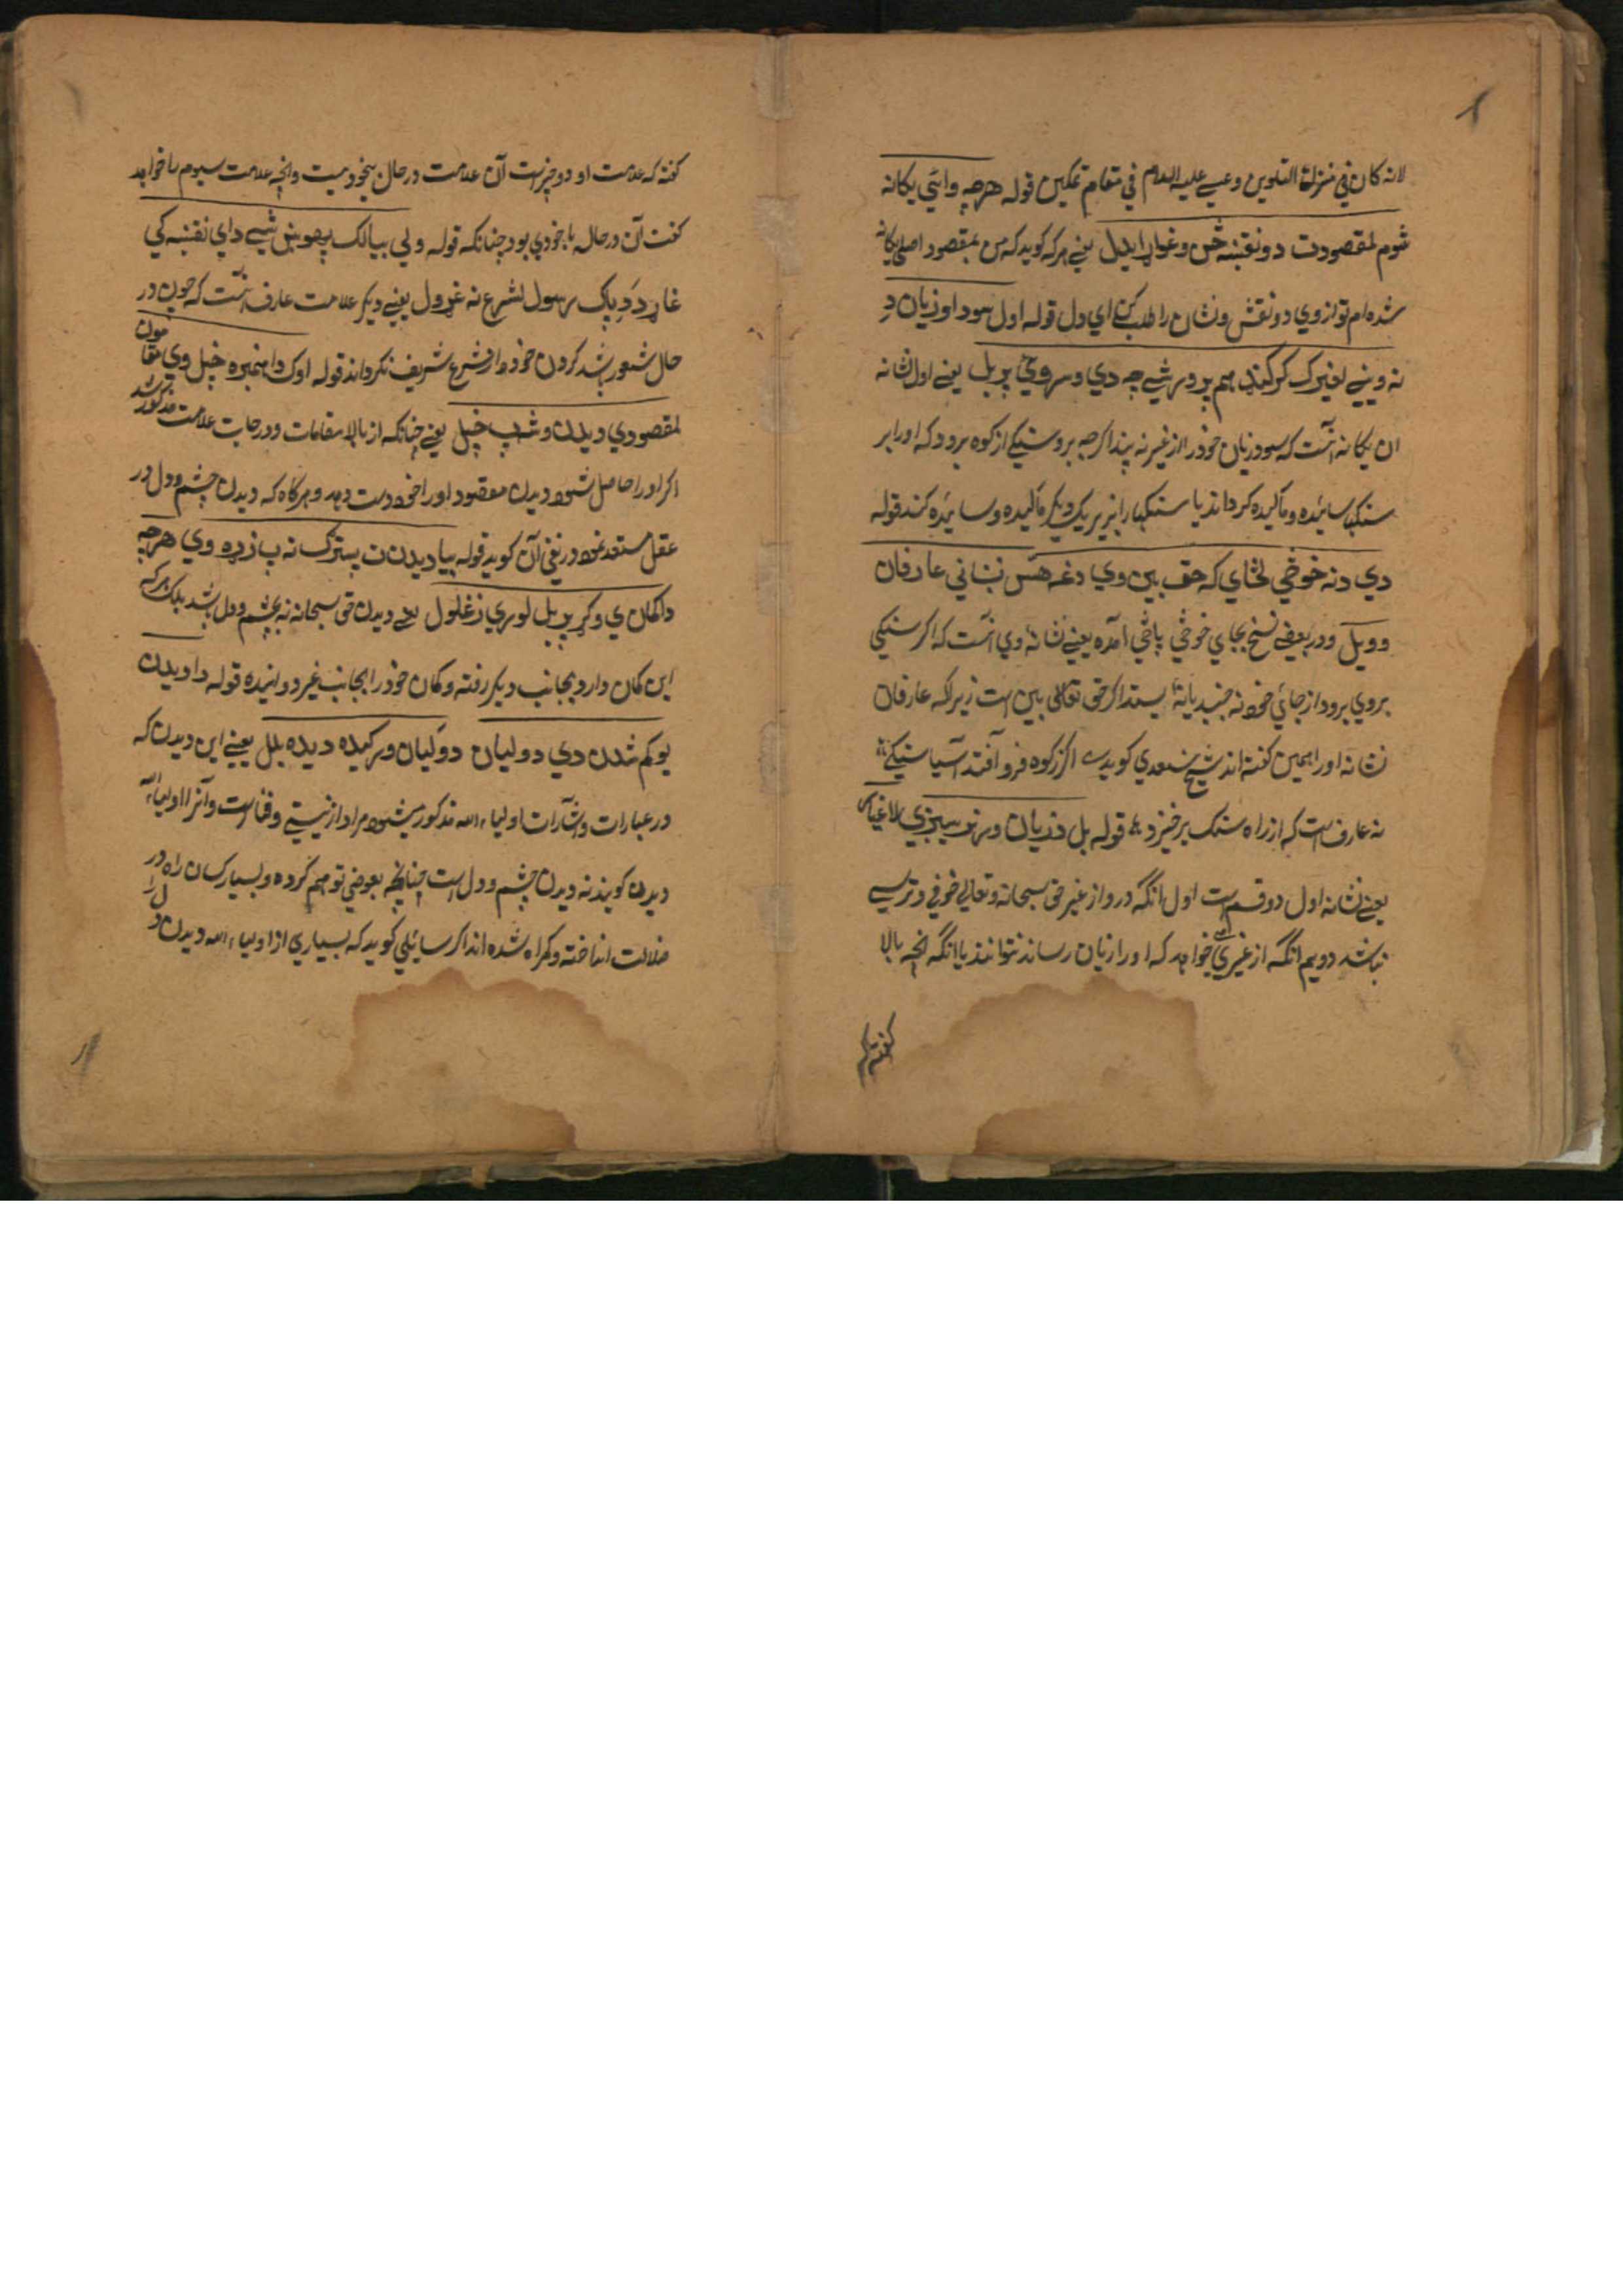 لانه کان في منزلة التلوین و عیسے علیه السلام في مقام تمکین قوله هرچه وائي یکانه
شوم لمقصودت دو نقښه حٔس وغواړ ایدل یعنے هرکه کوید که من بمقصود اصلی یکانه
شده ام تو از وي دو نقش و نشان را طلب کن اي دل قوله اول سود او زیان دِ
نه ویني لغیرک کرکیند بهم پر ور شے چه دي وسروځي پر بل یعنے اول نشانه
ان یکانه انست که سود و زیان خود را از غیر نه پندا کرچه بروسنکے از کوه برود که اورا بر
سنکها سائیده و مالیده کرداند یا سنکها را بزیر یک دیکر مالیده و سائیده کند قوله
دي دنه خوځي لځاي که حق بین وي دغه هس نښاني عارفان
وویل و در بعضے نسخ بجاي خوځي پاڅي آمده یعنے نشانه وي انست که اکر سنکی
بروي برود از جائي خود نه جنبد یا نه ایستد اکر حق تعالی بین است زیراکه عارفان
نشانه اورا همین کفته اند شیخ سعدي کویدے اکر زکوه فرو آفتد آسیا سنکے
نه عارف است که از راه سنک برخیزد قوله بل د زیان ویره نه بیږي لاغیاس
یعنے نشانه اول دو قسم است اول آنکه در و از غیر حق سبحانه و تعالي خوفي و ترسے
نباشد دویم آنکه از غیري خواهد که اورا زیان رساند نتواند یا آنکه انچه بالا
کفته که علامت او دو چیز است آن علامت در حال بیخودیست و انچه علامت سیوم را خواهد
کفت آن در حال با خودي بود چنانکه قوله ولي بیا لک پهوښ شے داي نقښه کي
غاړ دَدِ پاک رسول لشرع نه غړول یعنے دیکر علامت عارف انست که چون در
حال شعور باشد کردن خود را از شرع شریف نکرداند قوله اوک دا هنمبره خپل وي مقامون
لمقصودي دیدن و شب خپل یعنے چنانکه از بالا مقامات و درجات علامت مذکور شد
اکر اورا حاصل شود دیدن مقصود اورا خود دست دهد و هرکاه که دیدن چشم و دل در
عقل مستعد بود در نفي آن کوید قوله بیا دیدن ن بسترک نه ب زړه وي هرچه
دا کمان ي وکړ پر بل لوري زغلول یعے دیدن حق سبحانه نه بچشم و دل باشد بلک هرکه
این کمان دارد بجانب دیکر رفته و کمان خود را بجانب غیر دوانیده قوله دا ویدن
یو کم شدن دي د ولیان د وکیان ورکیده دیده بلل یعنے این دیدن که
در عبارات و اشارات اولیاء الله مذکور میشود مراد از نیستے و فنا است و آنرا اولیاء
دیدن کویند نه دیدن چشم و دل است چنانچه بعوضي توهم کرده و بسیار کسان راه در
ضلالت انداخته و کمراه شده اند اکر سائلي کوید که بسیاري از اولیاء الله دیدن